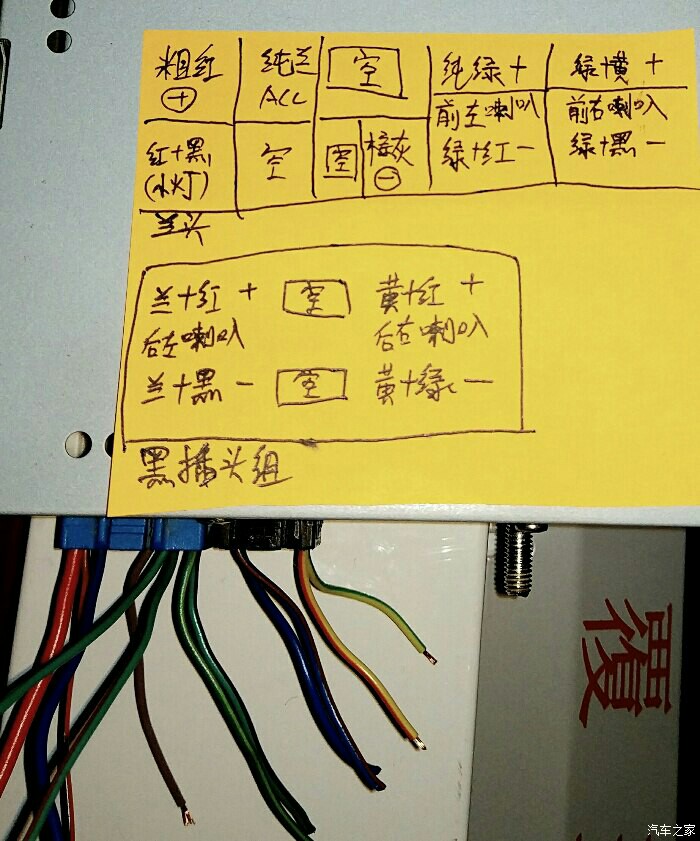 粗红 纯兰 空 纯绿+ 绿+黄+
⊕ ACC 前左喇叭 前右喇叭
红+黑 空 空 棕灰 绿+红- 绿+黑-
(小灯) ⊖
兰头
兰+红 + 空 黄+红 +
后左喇叭 后右喇叭
兰+黑 - 空 黄+绿 -
黑插头组
覆
汽车之家